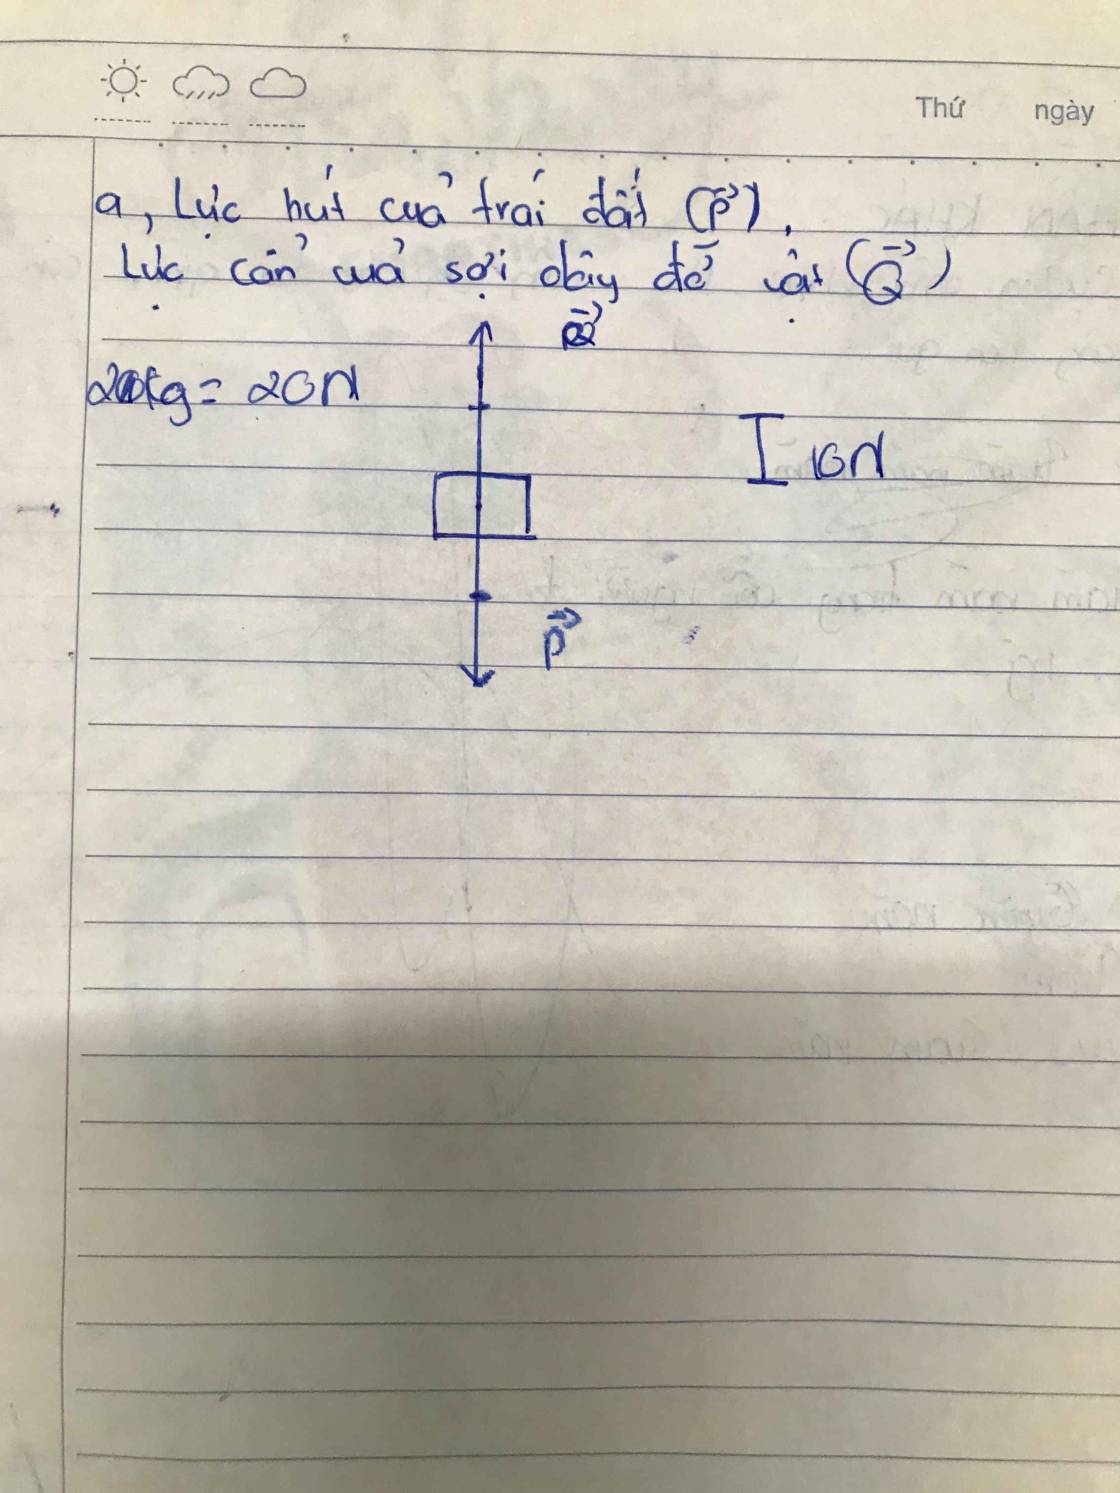 Thứ ngày
a, Lực hút của trái đất (P⃗).
Lực cản của sợi dây đế vật (Q⃗)
Q⃗
= 20N
10N
P⃗